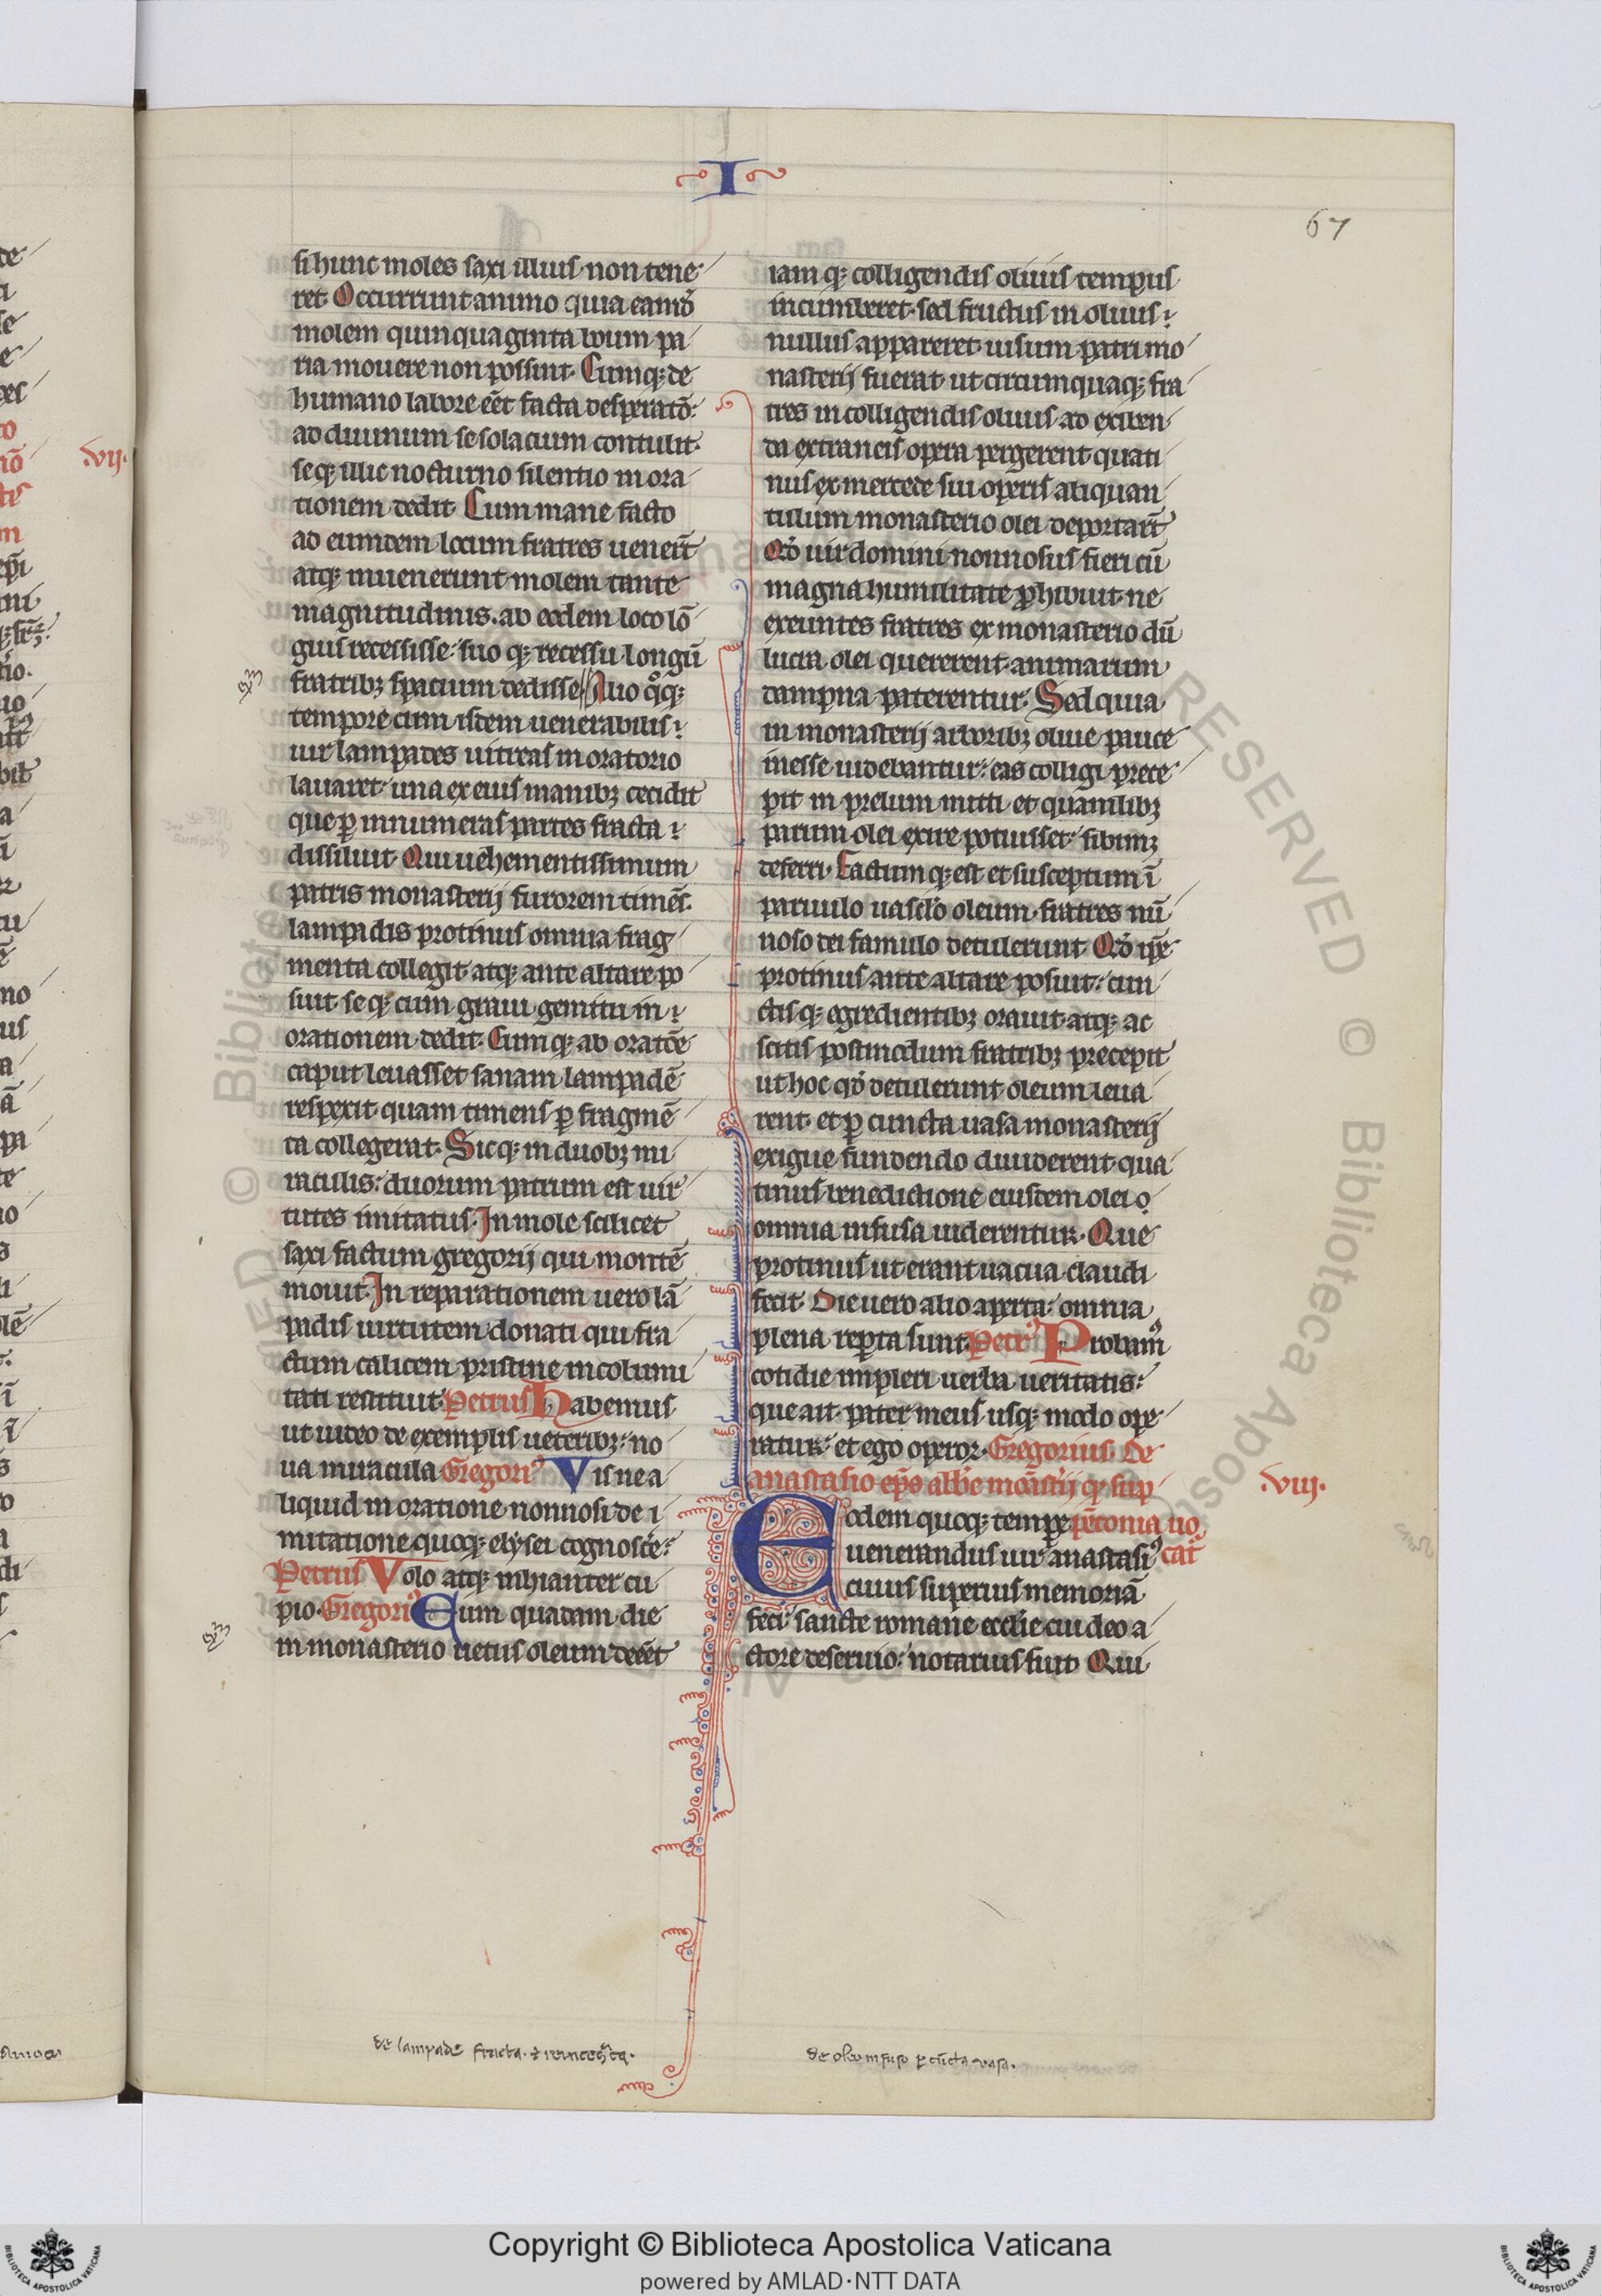 I
67
si hunc moles saxi illius non tene
ret Occurrunt animo quia eamd̄
molem quinquaginta boum pa
ria mouere non possint. Cumq; de
humano labore eēt facta desperatō:
ad diuinum se solacium contulit.
seq; illic nocturno silentio in ora
tionem dedit. Cum mane facto
ad eumdem locum fratres uenerūt
atq; inuenerunt molem tante
magnitudinis. ab eodem loco lō
gius recessisse: suo q; recessu longū
fratribȝ spatium dedisse. Alio q̊q;
tempore cum isdem uenerabilis
uir lampades uitreas in oratorio
lauaret. una ex eius manibȝ cecidit
que ꝑ innumeras partes fracta
dissiluit. Qui uehementissimum
patris monasterij furorem timēs.
lampadis protinus omnia frag
menta collegit. atq; ante altare po
suit seq; cum graui gemitu in
orationem dedit. Cumq; ab oratōe
caput leuasset sanam lampadē
respexit quam timens ꝑ fragmē
ta collegerat. Sicq; in duobȝ mi
raculis: duorum patrum est uir
tutes imitatus. In mole scilicet
saxi factum gregorij qui montē
mouit. In reparationem uero lā
padis uirtutem donati qui fra
ctum calicem pristine incolumi
tati restituit. Petrus Habemus
ut uideo de exemplis ueteribȝ: no
ua miracula Gregori⁹ Visne a
liquid in oratione nonnosi de i
mitatione quoq; elysei cognosc̄e:
Petrus Volo atq; inhianter cu
pio. Gregori⁹ Cum quadam die
in monasterio uetus oleum deeēt
iam q; colligendis oliuis tempus
incumberet. sed fructus in oliuis
nullus appareret. uisum patri mo
nasterij fuerat ut circumquaq; fra
tres in colligendis oliuis ad exiben
da extraneis opera pergerent. quati
nus ex mercede sui operis aliquan
tulum monasterio olei deportarēt
Qd̄ uir domini nonnosus fieri cū
magna humilitate ꝓhibuit. ne
exeuntes fratres ex monasterio dū
lucra olei quererent. animarum
dampna paterentur. Sed quia
in monasterij arboribȝ oliue pauce
inesse uidebantur: eas colligi prece
pit in prelum mitti et quamlibȝ
parum olei exire potuisset. sibimȝ
deferri. Factum q; est et susceptum ī
paruulo uasclo oleum. fratres nū
noso dei famulo detulerunt. Qd̄ ip̄e
protinus ante altare posuit: cun
ctis q; egredientibȝ orauit. atq; ac
scitis postmodum fratribȝ precepit
ut hoc qd̄ detulerunt oleum leua
rent. et ꝑ cuncta uasa monasterij
exigue fundendo diuiderent. qua
tinus benedictione eiusdem olei o
omnia infusa uiderentur. Que
protinus ut erant uacua claudi
fecit. Die uero alio aperta: omnia
plena reꝑta sunt. Petr⁹ Probam⁹
cotidie impleri uerba ueritatis:
que ait. pater meus usq; modo ope
ratur: et ego operor. Gregorius. De
anastasio ep̄o
.viii.
Eodem quoq; tempore
uenerandus uir anastasi⁹
cuius superius memoriā
feci: sancte romane eccl̄ie cui deo a
ctore deseruio: notarius fuit. Qui
.vij.
de lampade fracta.
de oleo infuso ꝑ cūcta vasa.
Copyright © Biblioteca Apostolica Vaticana
powered by AMLAD·NTT DATA